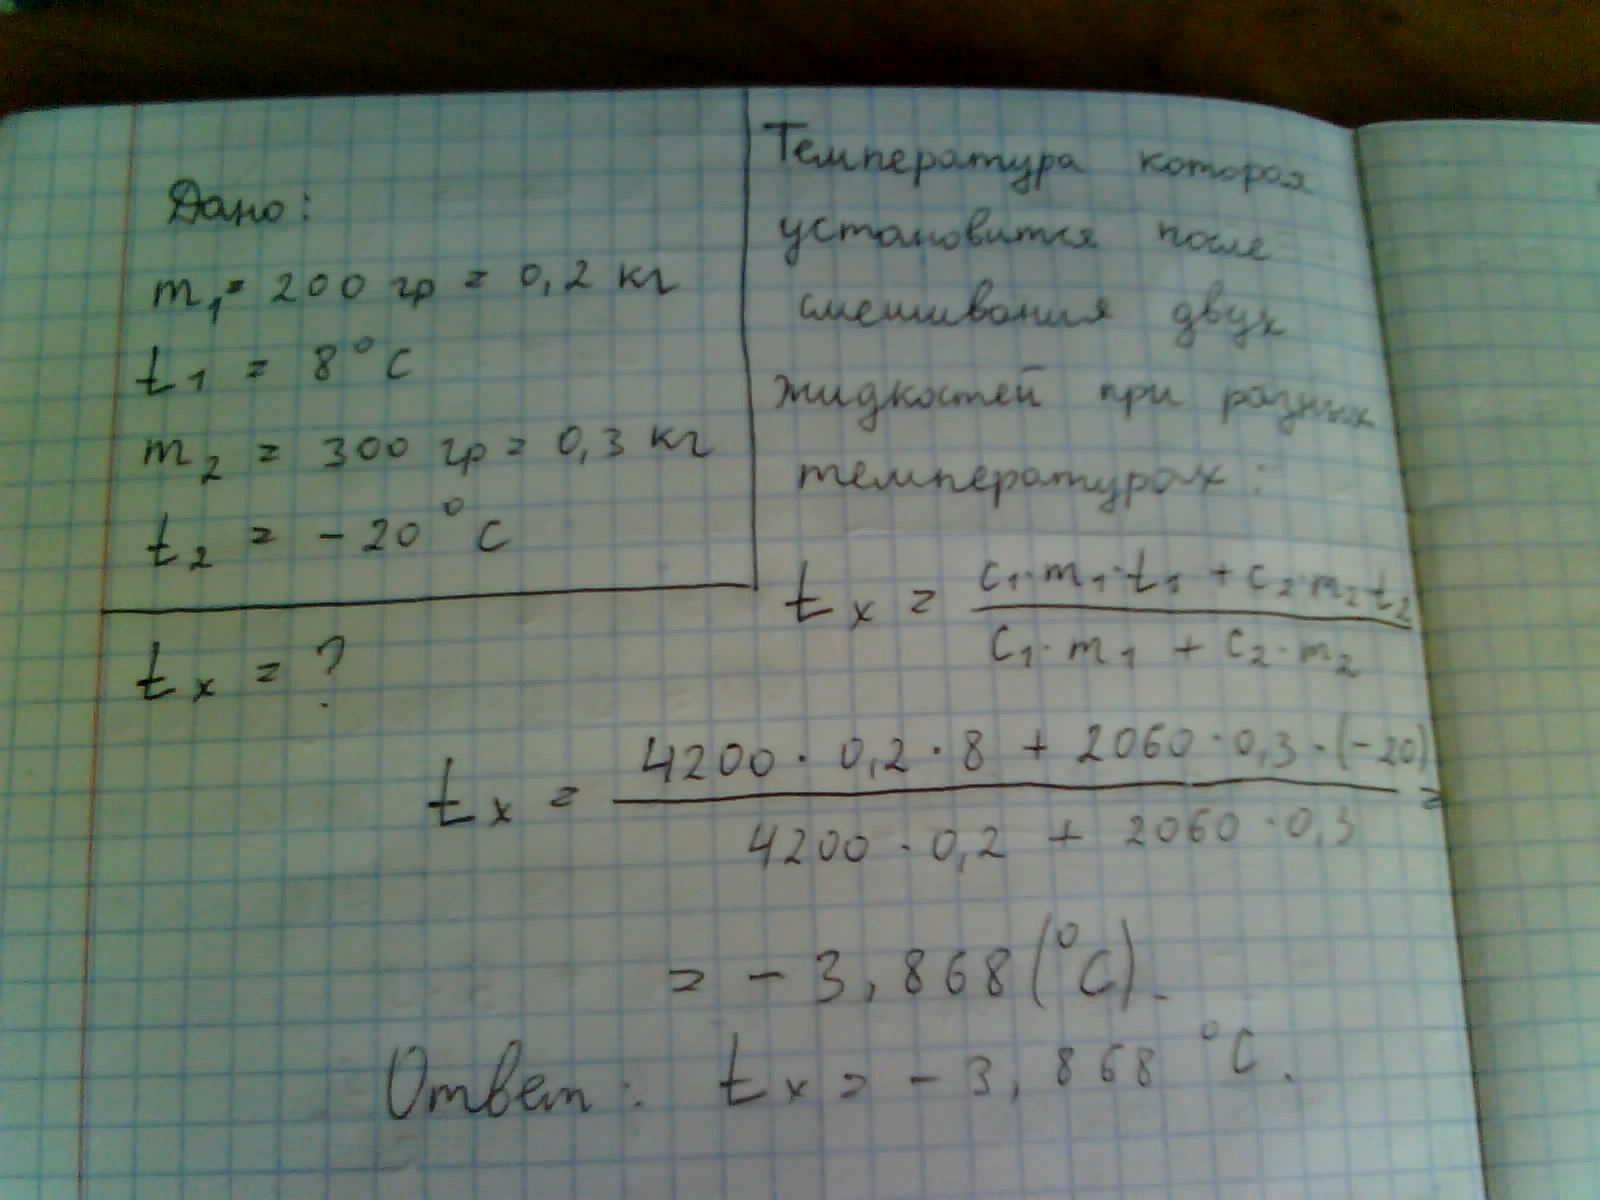 Дано:
m₁ = 200 гр = 0,2 кг
t₁ = 8°C
m₂ = 300 гр = 0,3 кг
t₂ = -20°C
tₓ = ?
Температура которая
установится после
смешивания двух
жидкостей при разных
температурах:
tₓ = (c₁·m₁·t₁ + c₂·m₂·t₂) / (c₁·m₁ + c₂·m₂)
tₓ = (4200 · 0,2 · 8 + 2060 · 0,3 · (-20)) / (4200 · 0,2 + 2060 · 0,3) =
= -3,868 (°C).
Ответ: tₓ = -3,868 °C.